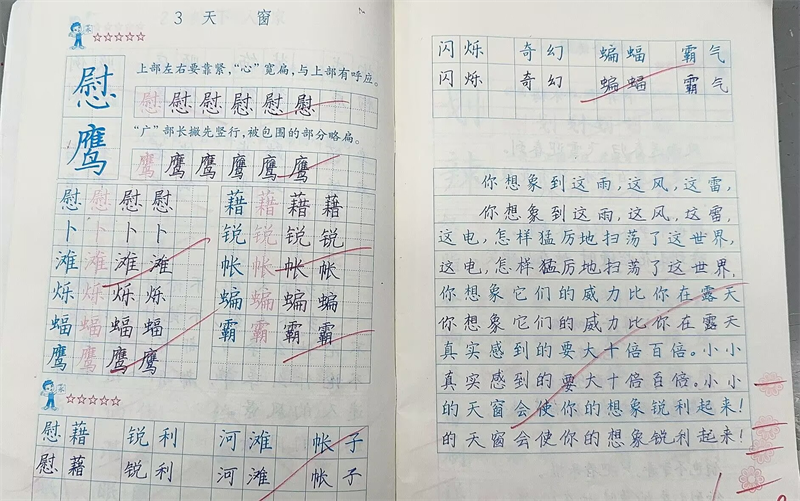 3 天 窗
慰 上部左右要靠紧，“心”宽扁，与上部有呼应。
慰 慰 慰 慰 慰 慰
鹰 “广”部长撇先竖行，被包围的部分略扁。
鹰 鹰 鹰 鹰 鹰 鹰
慰 慰 慰 慰 藉 藉 藉 藉
卜 卜 卜 卜 锐 锐 锐 锐
滩 滩 滩 滩 帐 帐 帐 帐
烁 烁 烁 烁 蝙 蝙 蝙 蝙
蝠 蝠 蝠 蝠 霸 霸 霸 霸
鹰 鹰 鹰 鹰
慰藉 锐利 河滩 帐子
慰藉 锐利 河滩 帐子
闪烁 奇幻 蝙蝠 霸气
闪烁 奇幻 蝙蝠 霸气
你想象到这雨，这风，这雷，
你想象到这雨，这风，这雷，
这电，怎样猛厉地扫荡了这世界，
这电，怎样猛厉地扫荡了这世界，
你想象它们的威力比你在露天
你想象它们的威力比你在露天
真实感到的要大十倍百倍。小小
真实感到的要大十倍百倍。小小
的天窗会使你的想象锐利起来！
的天窗会使你的想象锐利起来！